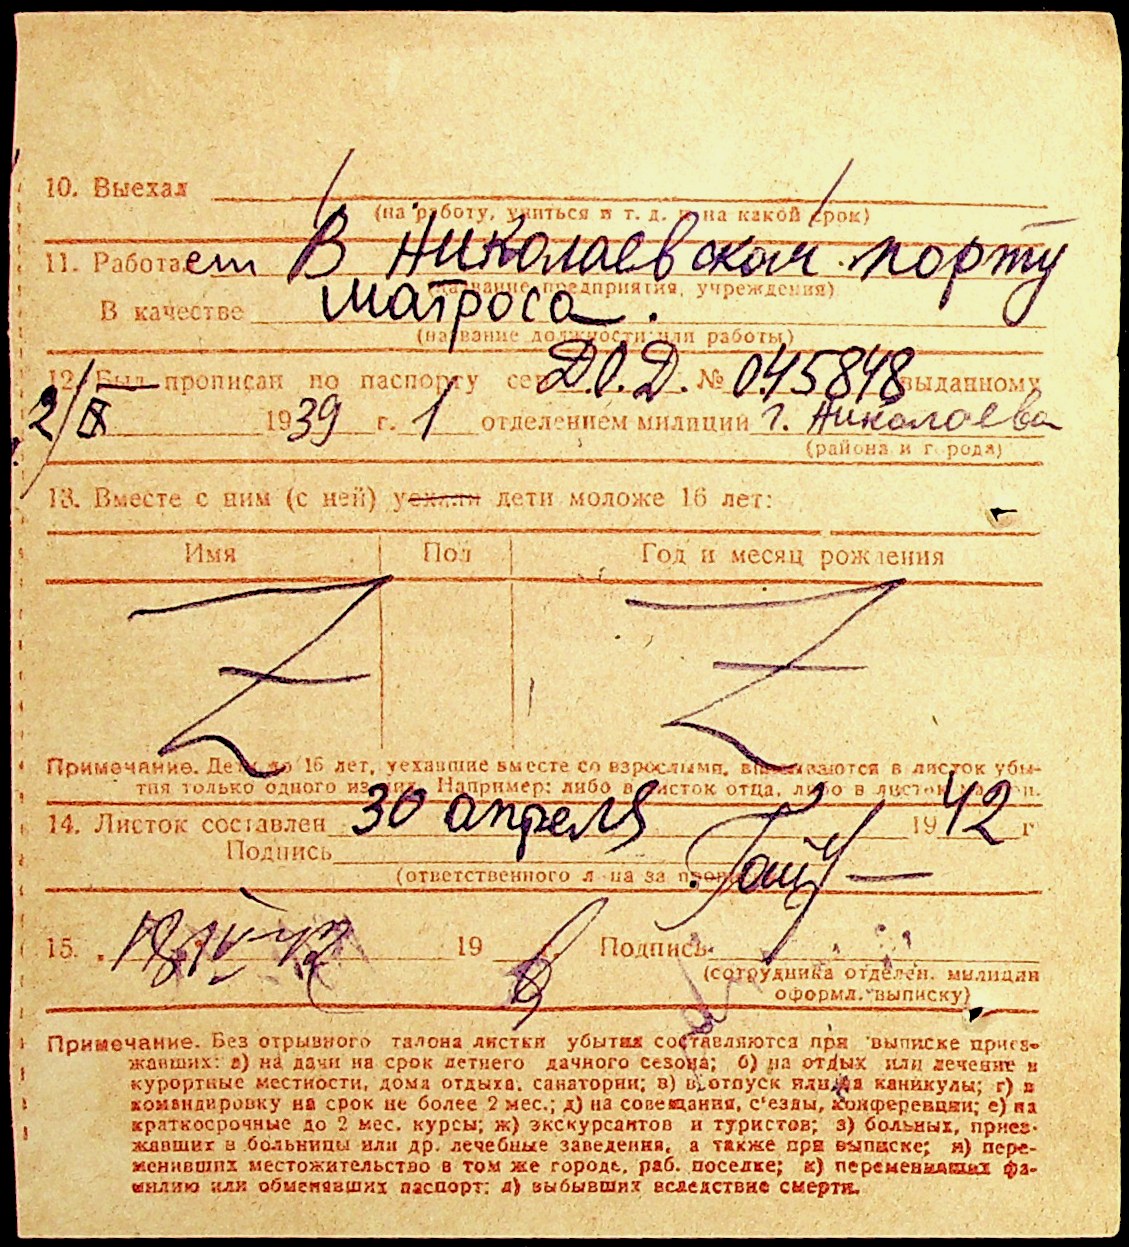 10. Выехал
(на работу, учиться и т. д. и на какой срок)
11. Работает В Николаевском порту
(название предприятия, учреждения)
В качестве матроса.
(название должности или работы)
12. Был прописан по паспорту сер. Д.О.Д. № 045848 выданному
2/IX 1939 г. 1 отделением милиции г. Николаева
(района и города)
13. Вместе с ним (с ней) уехали дети моложе 16 лет:
Имя Пол Год и месяц рождения
Z Z
Примечание. Дети до 16 лет, уехавшие вместе со взрослыми, вписываются в листок убы-
тия только одного из них. Например: либо в листок отца, либо в листок матери.
14. Листок составлен 30 апреля 1942 г
Подпись
(ответственного лица за прописку)
15. 19 Подпись
(сотрудника отделен. милиции
оформл. выписку)
Примечание. Без отрывного талона листки убытия составляются при выписке приез-
жавших: а) на дачи на срок летнего дачного сезона; б) на отдых или лечение в
курортные местности, дома отдыха, санатории; в) в отпуск или на каникулы; г) в
командировку на срок не более 2 мес.; д) на совещания, с'езды, конференции; е) на
краткосрочные до 2 мес. курсы; ж) экскурсантов и туристов; з) больных, приез-
жавших в больницы или др. лечебные заведения, а также при выписке; и) пере-
менивших местожительство в том же городе, раб. поселке; к) переменивших фа-
милию или обменявших паспорт; л) выбывших вследствие смерти.